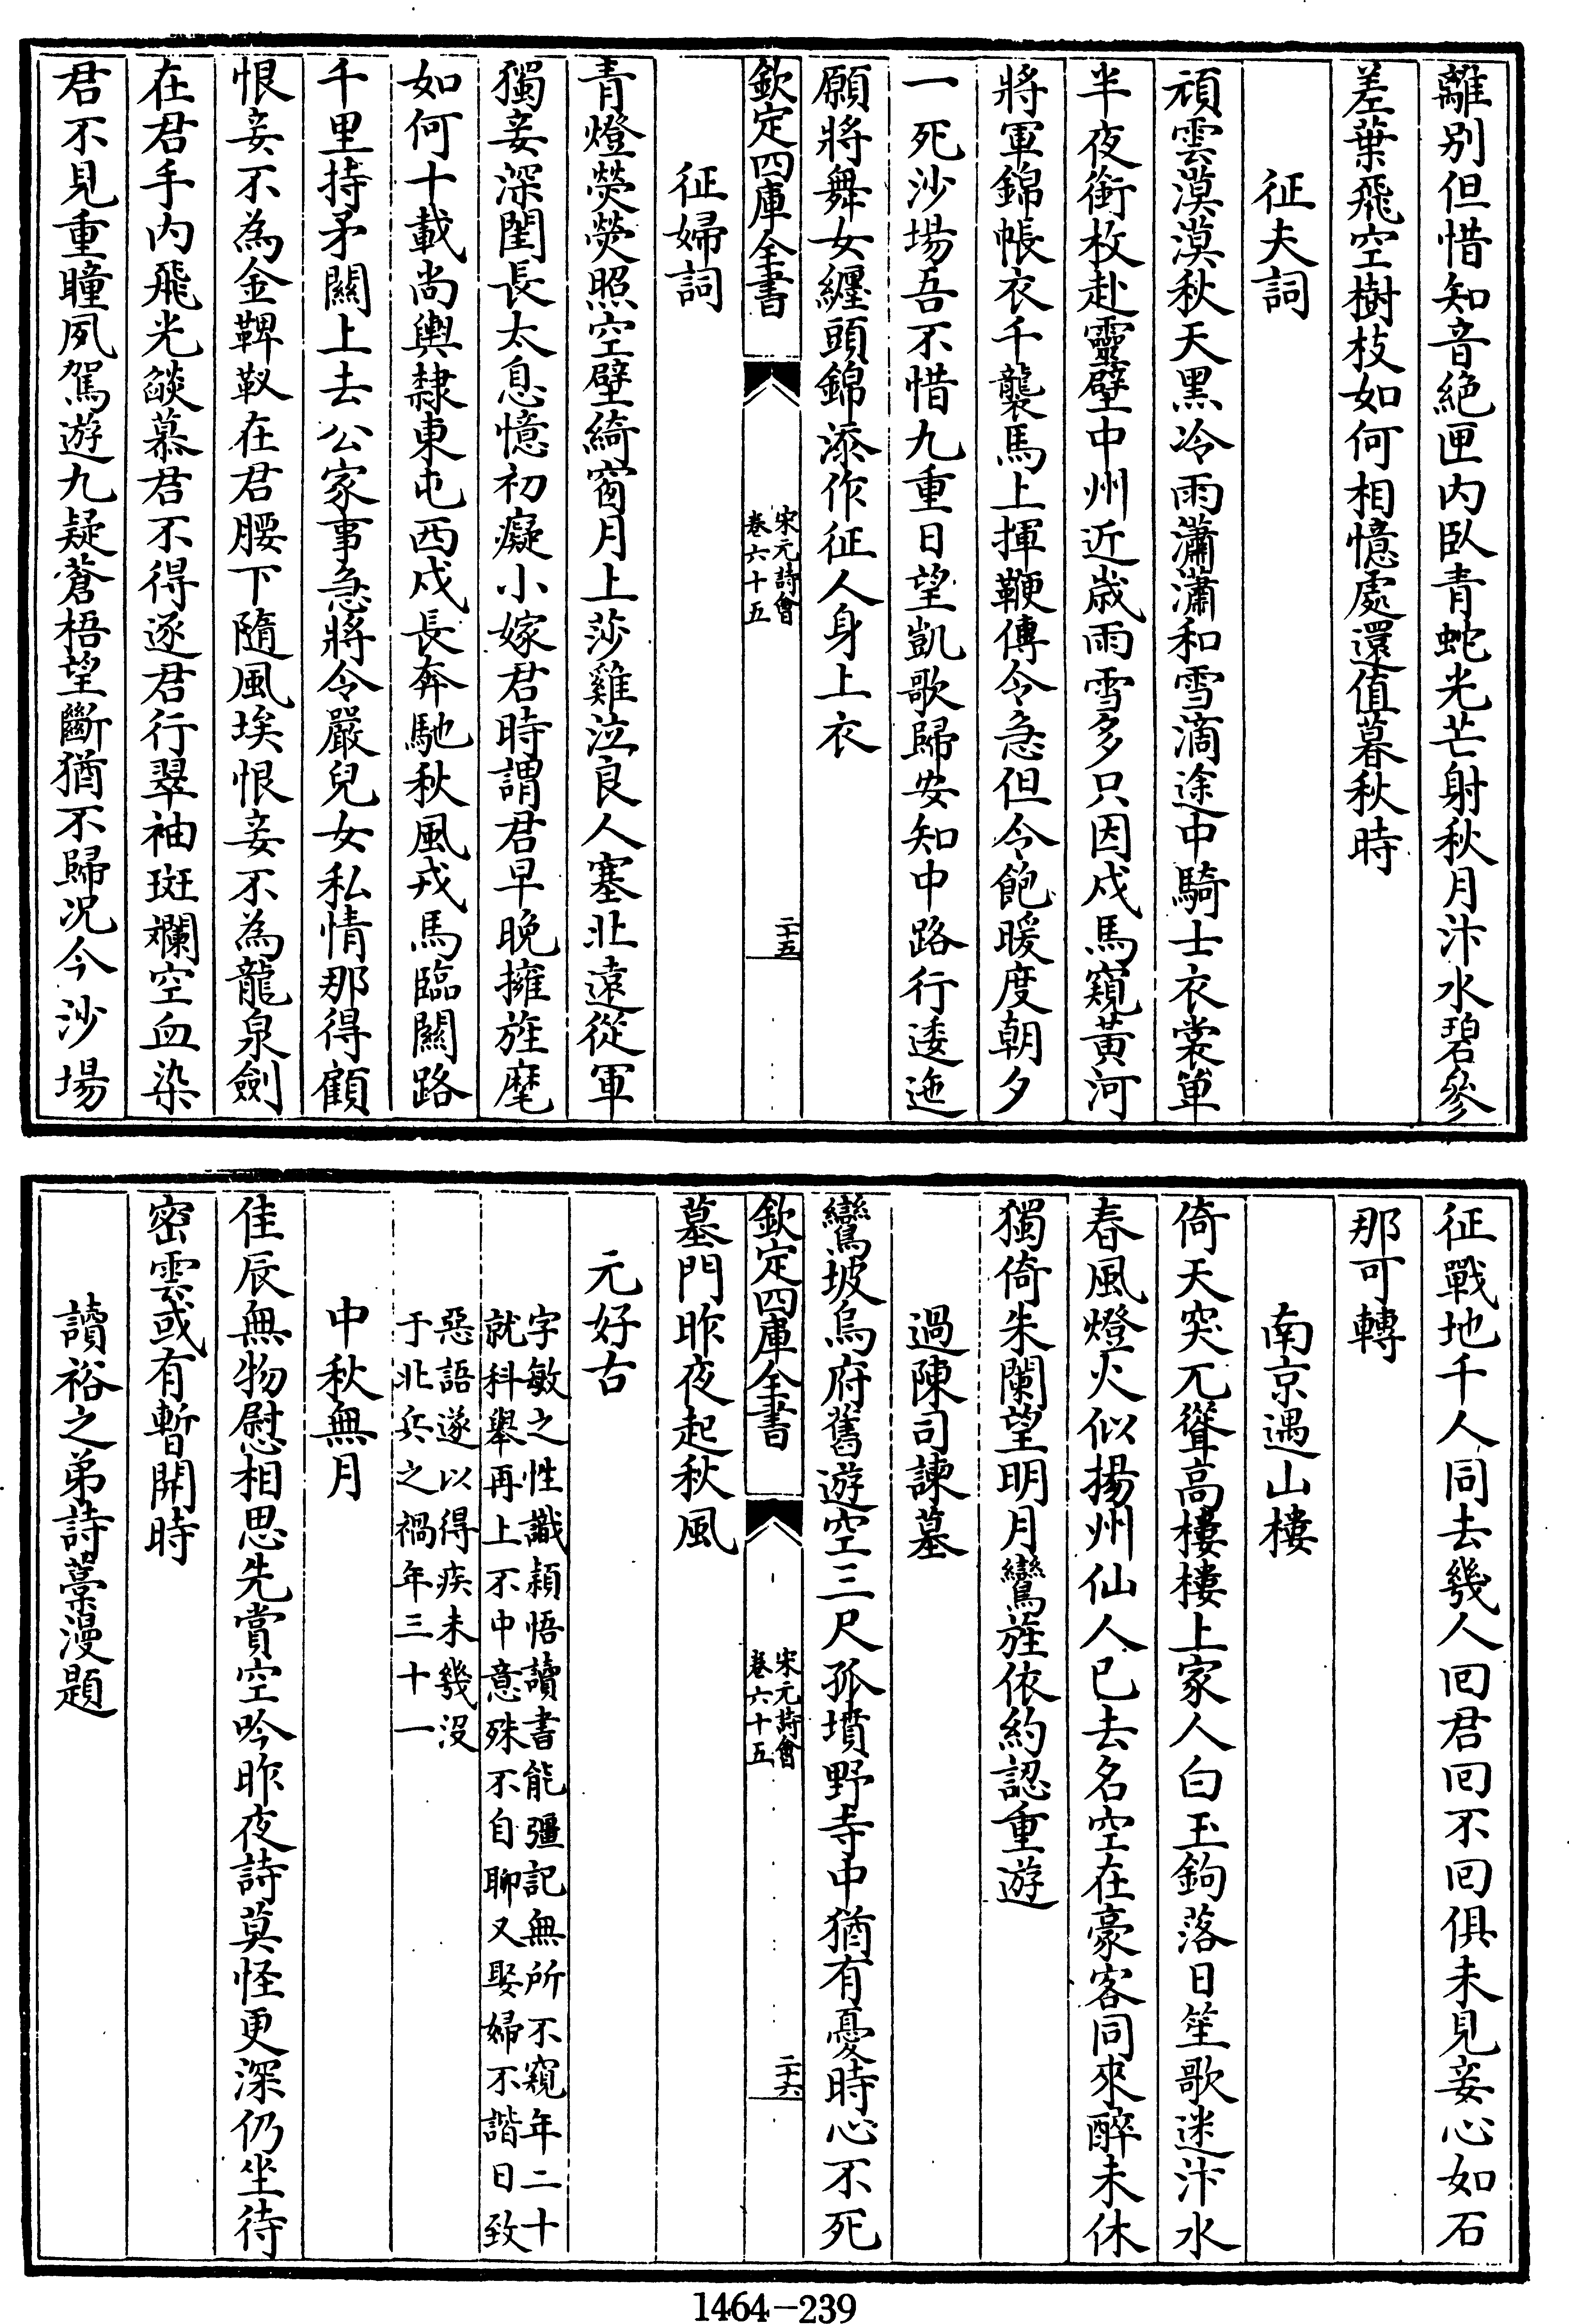 離别但惜知音絶匣内臥青蛇光芒射秋月汴水碧參
差葉飛空樹枝如何相憶處還值暮秋時
征夫詞
頑雲漠漠秋天黑冷雨瀟瀟和雪滴途中騎士衣裳單
半夜銜枚赴靈壁中州近嵗雨雪多只因戍馬窺黄河
將軍錦帳衣千襲馬上揮鞭傳令急但令飽暖度朝夕
一死沙場吾不惜九重日望凱歌歸安知中路行逶迤
願將舞女纒頭錦添作征人身上衣
欽定四庫全書
宋元詩會
卷六十五
二十五
征婦詞
青燈熒熒照空壁綺窗月上莎雞泣良人塞北遠從軍
獨妾深閨長太息憶初癡小嫁君時謂君早晚擁旌麾
如何十載尚輿隸東屯西戍長奔馳秋風戎馬臨關路
千里持矛關上去公家事急將令嚴兒女私情那得顧
恨妾不為金鞞靫在君腰下隨風埃恨妾不為龍泉劍
在君手内飛光燄慕君不得逐君行翠袖斑斕空血染
君不見重瞳夙駕遊九疑蒼梧望斷猶不歸况今沙場
征戰地千人同去幾人回君回不回俱未見妾心如石
那可轉
南京遇山樓
倚天突兀聳高樓樓上家人白玉鉤落日笙歌迷汴水
春風燈火似揚州仙人已去名空在豪客同來醉未休
獨倚朱闌望明月鸞旌依約認重遊
過陳司諫墓
鸞坡烏府舊遊空三尺孤墳野寺中猶有憂時心不死
欽定四庫全書
宋元詩會
卷六十五
二十六
墓門昨夜起秋風
元好古
字敏之性識穎悟讀書能彊記無所不窺年二十
就科舉再上不中意殊不自聊又娶婦不諧日致
惡語遂以得疾未幾没
于北兵之禍年三十一
中秋無月
佳辰無物慰相思先賞空吟昨夜詩莫怪更深仍坐待
密雲或有暫開時
讀裕之弟詩藳漫題
1464-239